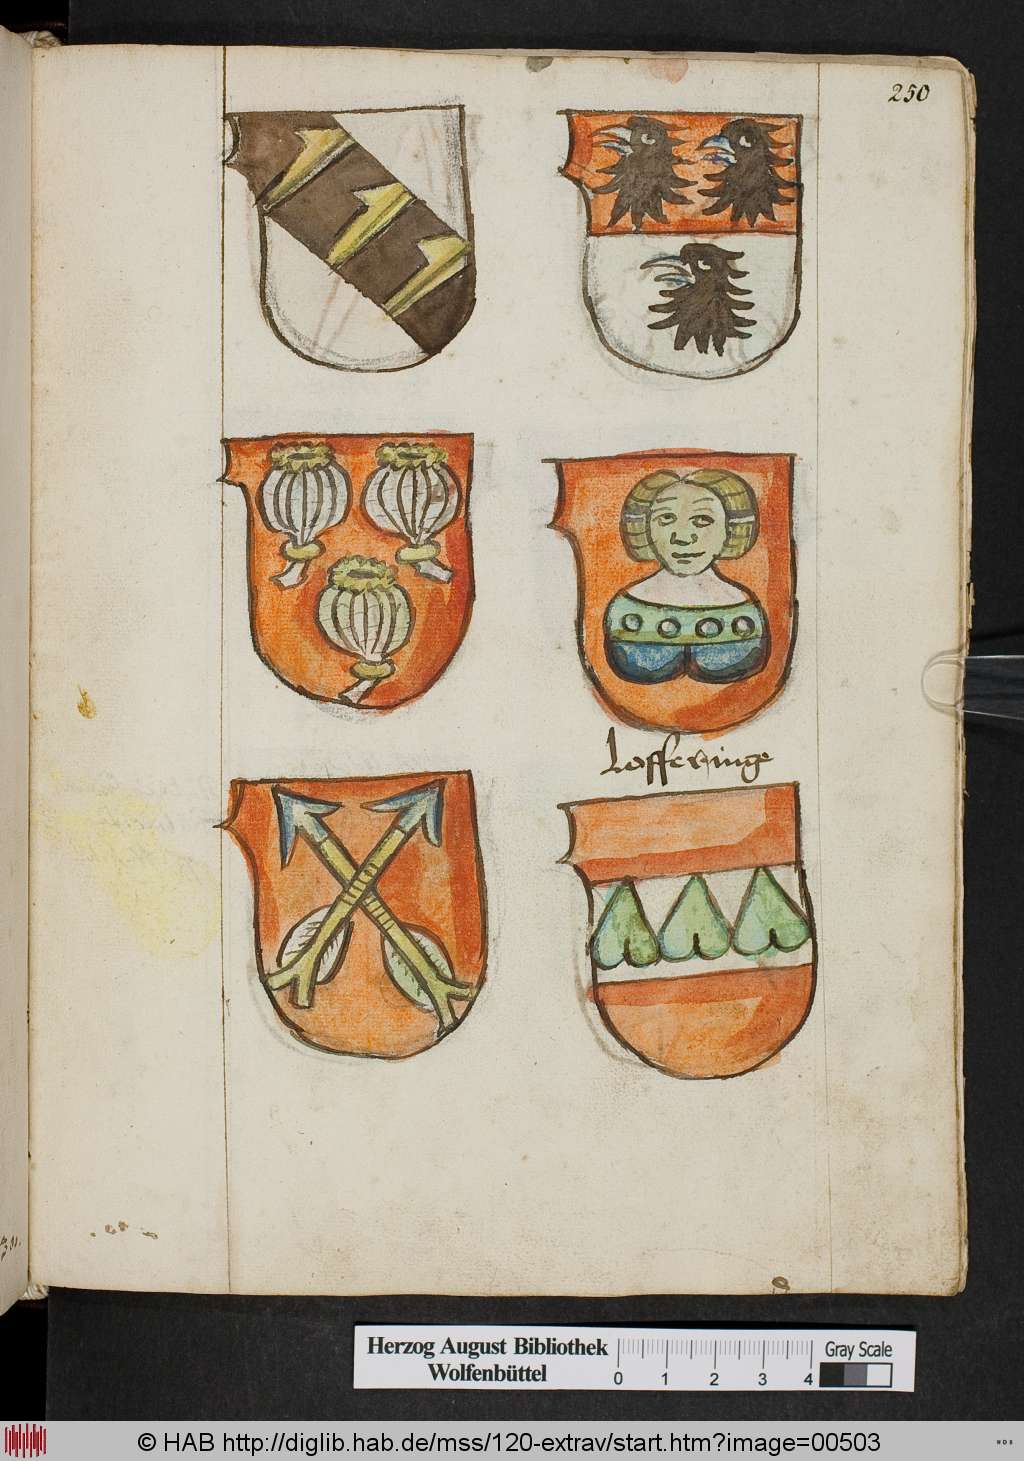 250
Lofferinge
Herzog August Bibliothek
Wolfenbüttel
0 1 2 3 4
Gray Scale
© HAB http://diglib.hab.de/mss/120-extrav/start.htm?image=00503